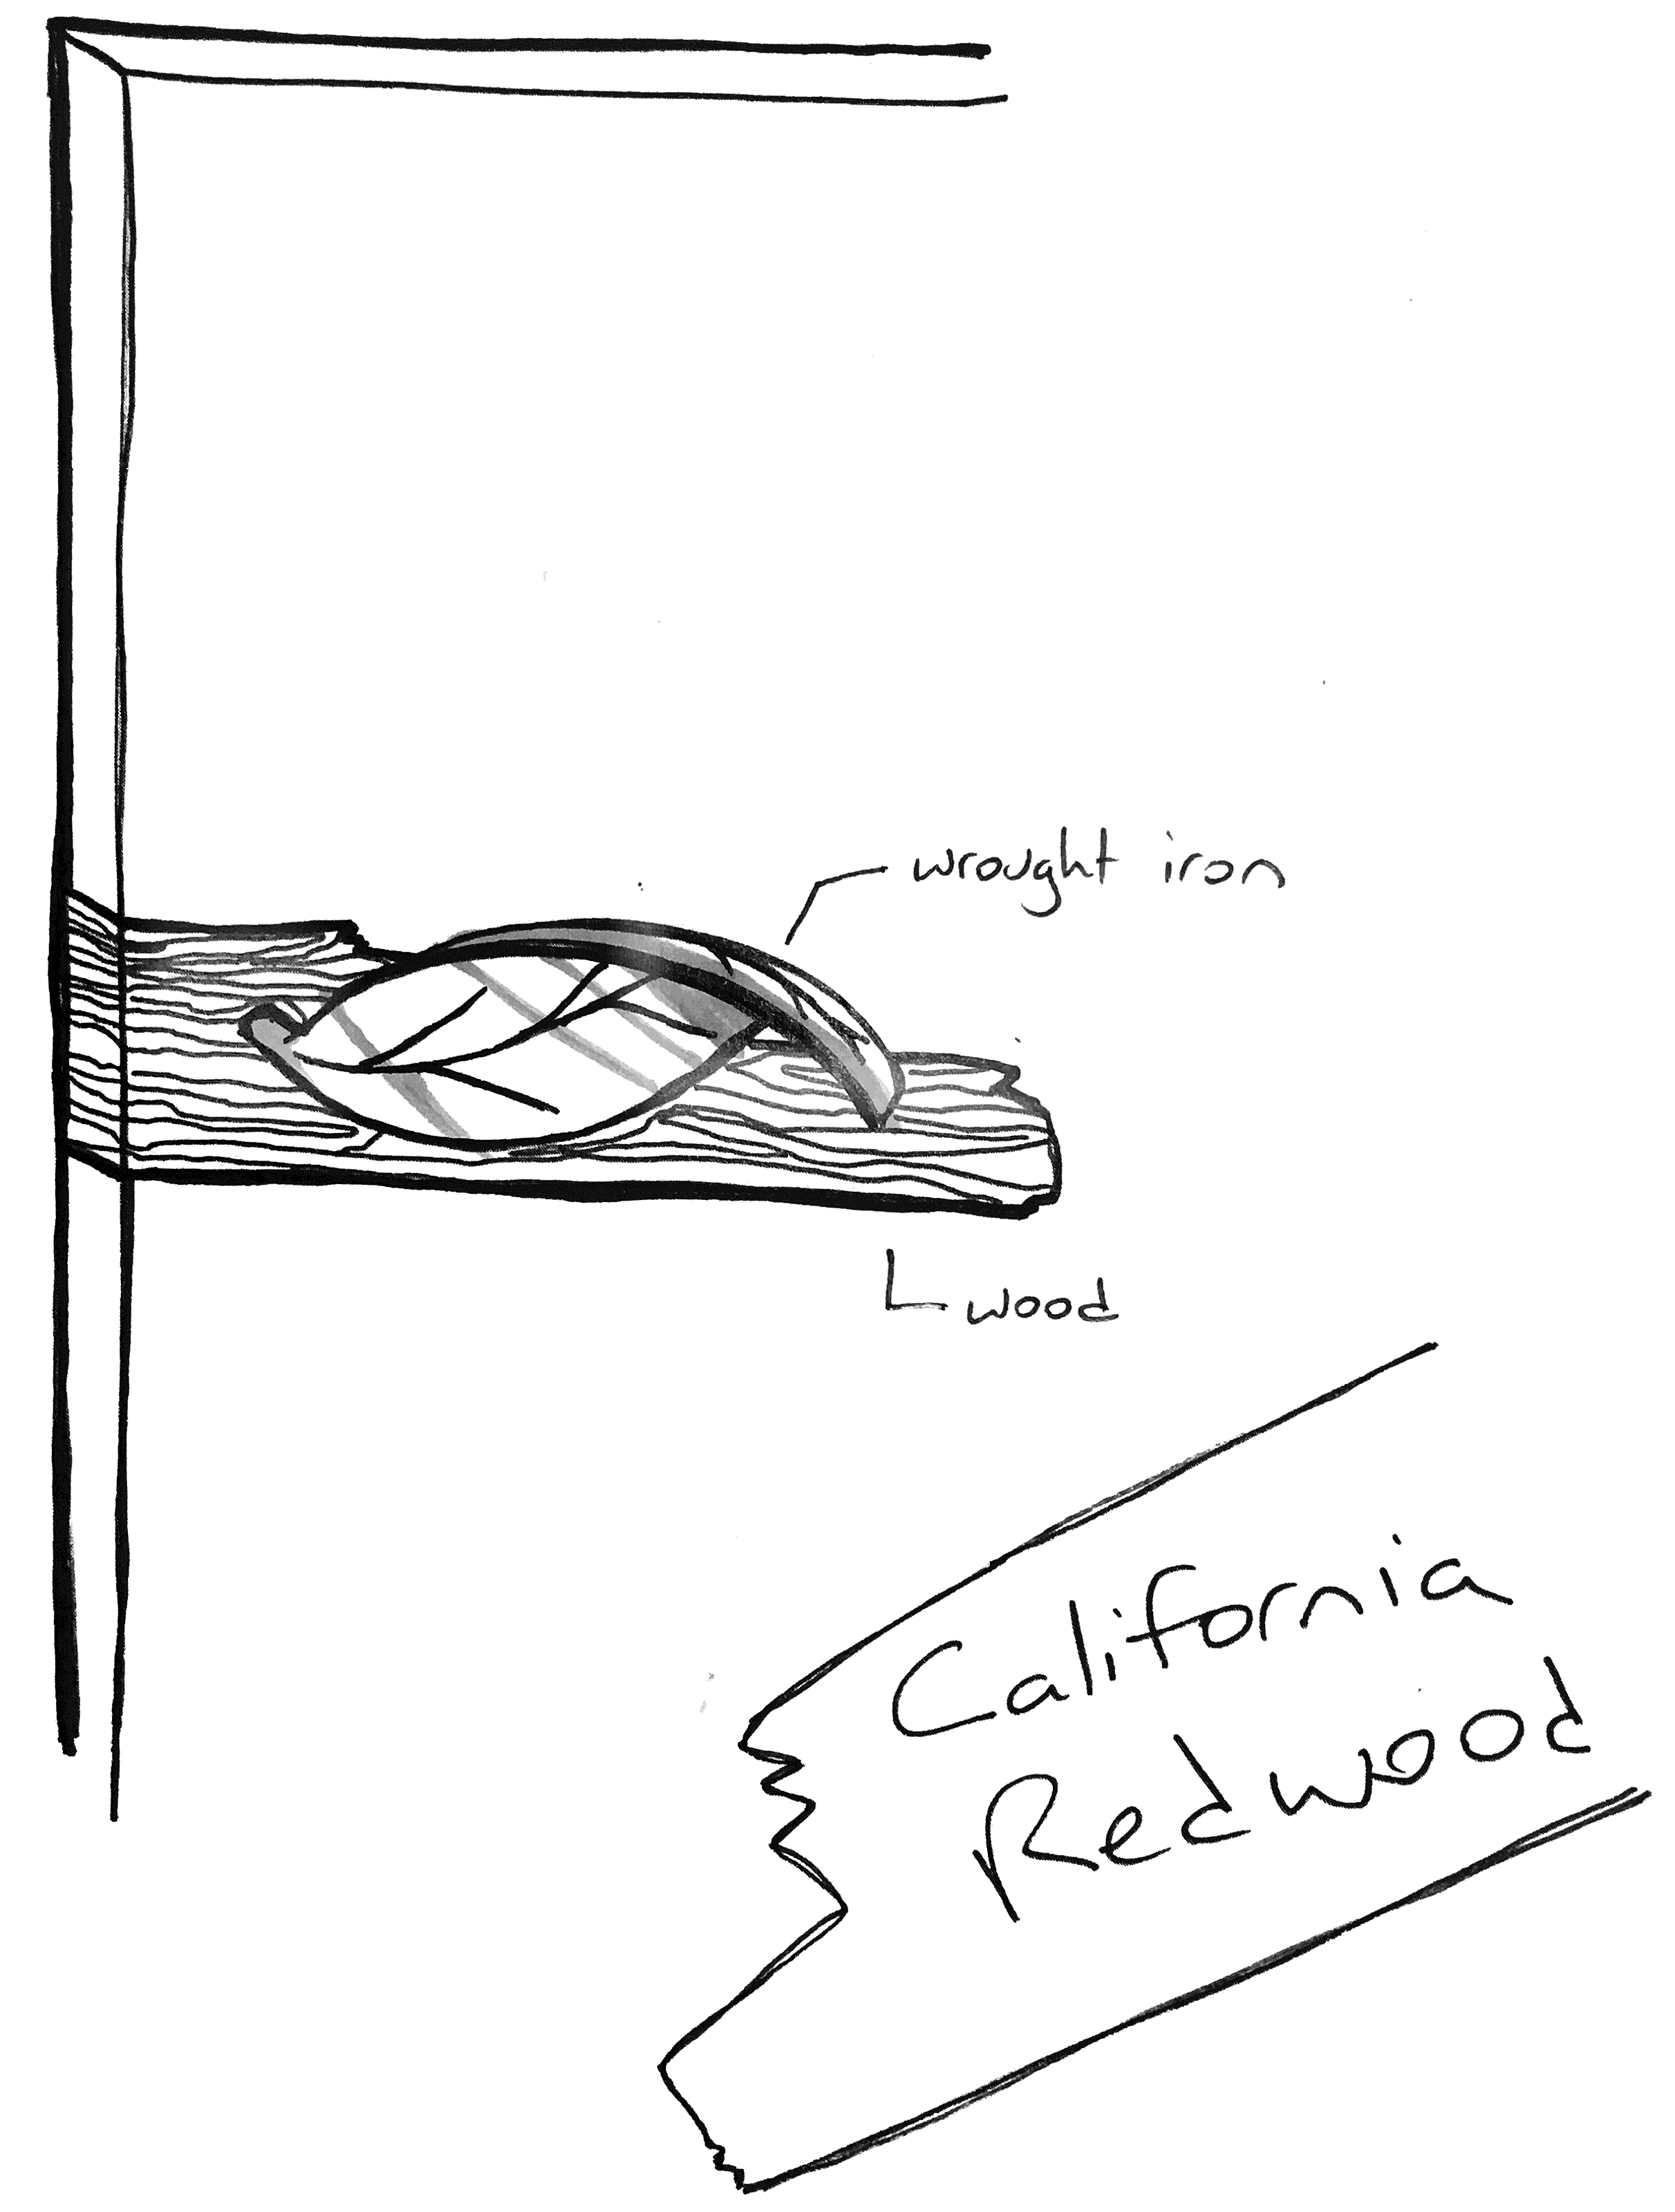 wrought iron
wood
California
Redwood